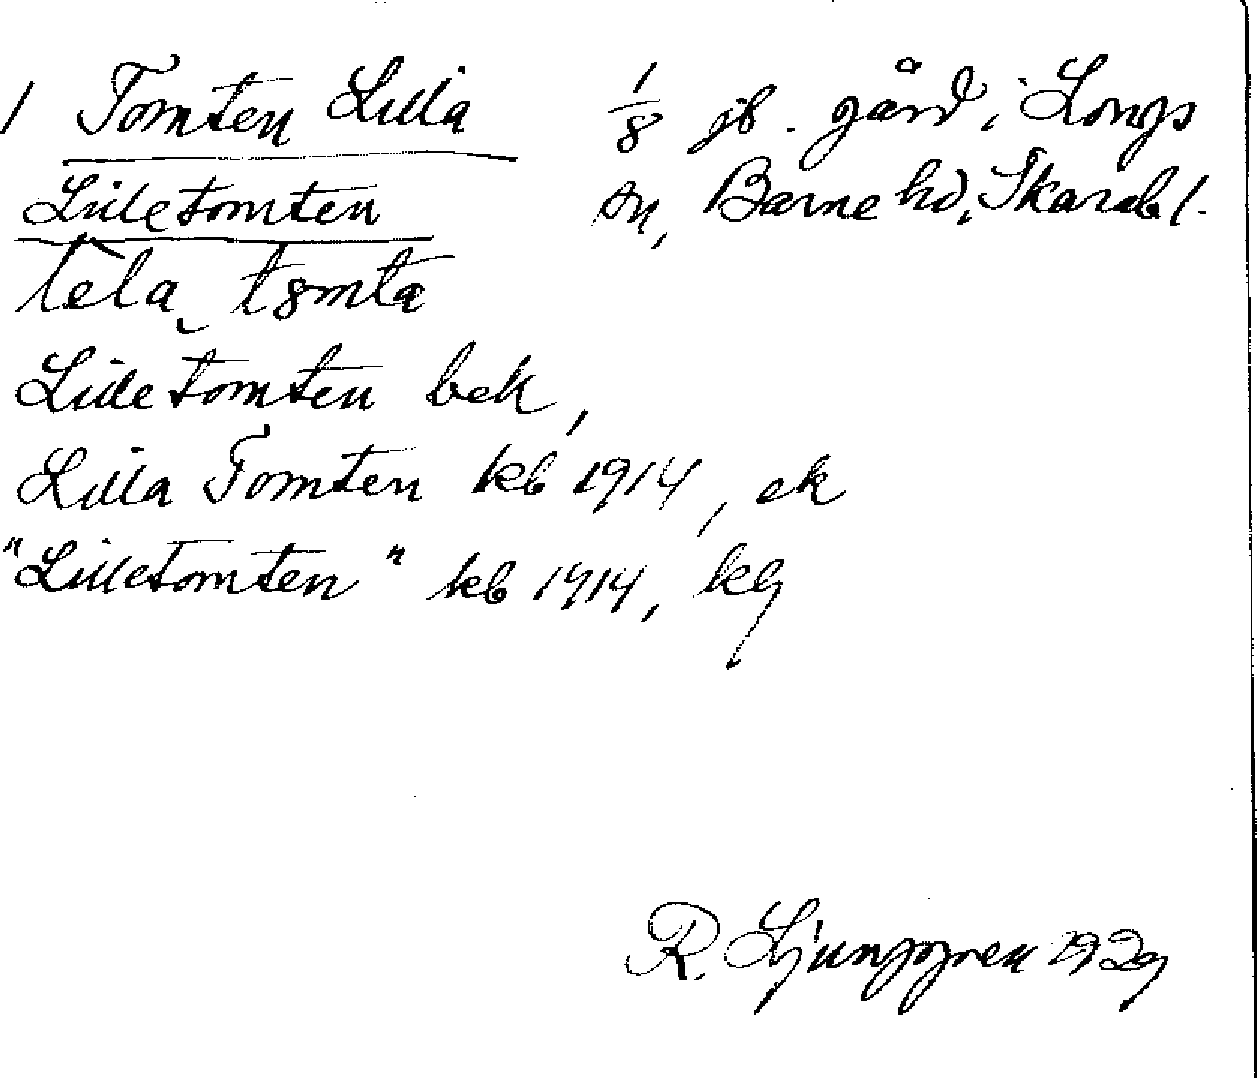 1 Tomten Lilla 1/8 jb. gård i Longs
Lilletomten sn, Barne hd, Skarab l.
lela tomta
Lilletomten bek,
Lilla Tomten kb 1914, ek
"Lilletomten" kb 1914, kg
R. Ljunggren 1929